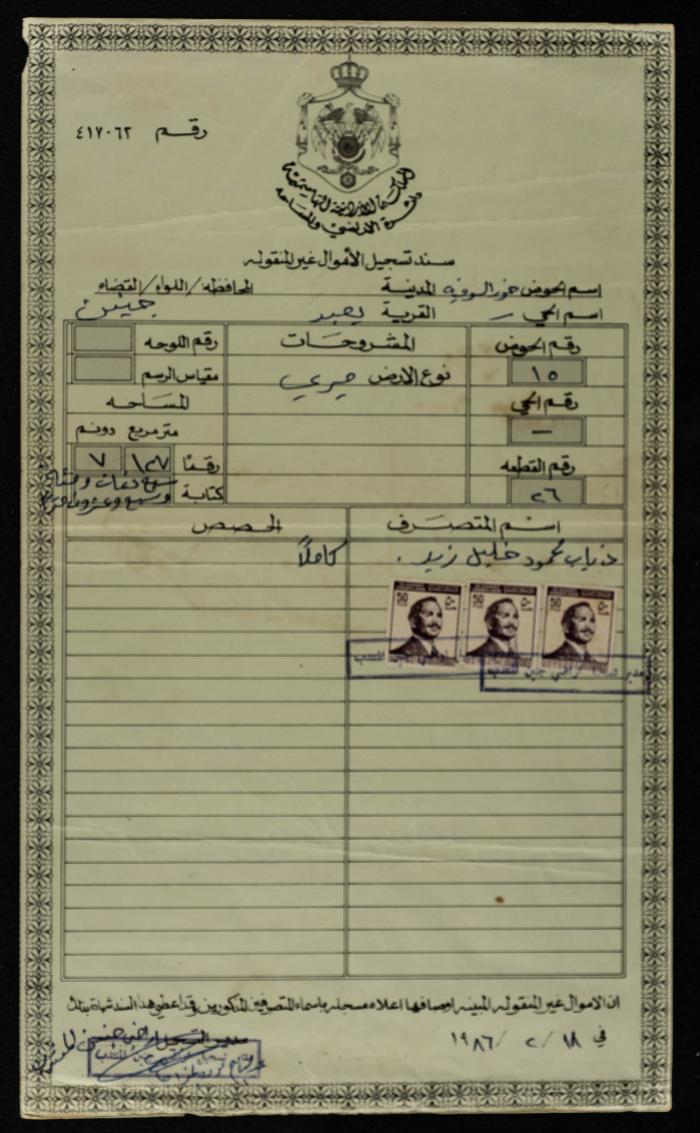 رقم ٤١٧٠٦٢
المملكة الأردنية الهاشمية
دائرة الاراضي والمساحة
سند تسجيل الأموال غير المنقوله
اسم الحوض خور الوفيه المدينة المحافظه/اللواء/القضاء
اسم الحي - القرية يعبد جنين
رقم الحوض المشروحات رقم اللوحه
١٥ نوع الارض ميري مقياس الرسم
رقم الحي المساحه
— متر مربع دونم
رقم القطعه رقمًا ١٢٧ ٧
٢٦ كتابة
اسم المتصرف الحصص
ذياب محمود خليل زيد . كاملاً
50 ٥٠ 50 ٥٠ 50 ٥٠
ان الاموال غير المنقوله المبينه اوصافها اعلاه مسجله باسماء المتصرفين المذكورين وقد اعطي هذا السند شهادة بذلك
في ١٨ / ٢ / ١٩٨٦ مدير التسجيل